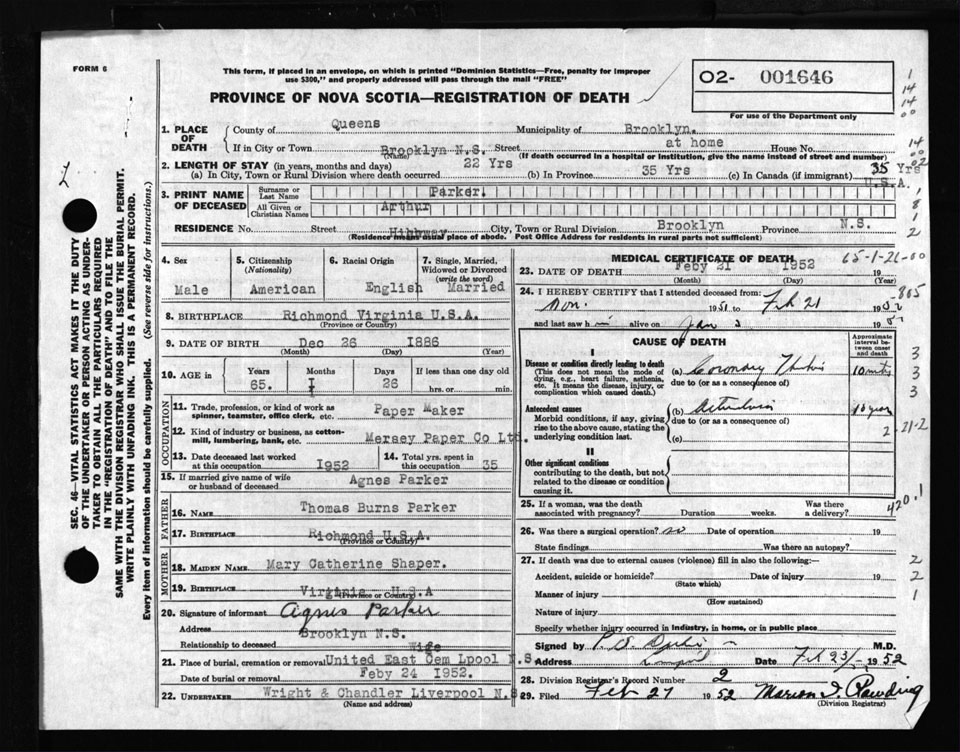 FORM 6
This form, if placed in an envelope, on which is printed "Dominion Statistics—Free, penalty for improper
use $300," and properly addressed will pass through the mail "FREE"
PROVINCE OF NOVA SCOTIA—REGISTRATION OF DEATH
02- 001646
For use of the Department only
1. PLACE OF DEATH
County of Queens Municipality of Brooklyn.
If in City or Town Brooklyn N.S. Street at home House No.
(Name) (If death occurred in a hospital or institution, give the name instead of street and number)
2. LENGTH OF STAY (in years, months and days)
(a) In City, Town or Rural Division where death occurred 22 Yrs (b) In Province 35 Yrs (c) In Canada (if immigrant) 35 Yrs
U.S.A.
3. PRINT NAME OF DECEASED
Surname or Last Name Parker.
All Given or Christian Names Arthur
RESIDENCE No. Street Highway City, Town or Rural Division Brooklyn Province N.S.
(Residence means usual place of abode. Post Office Address for residents in rural parts not sufficient)
4. Sex Male
5. Citizenship (Nationality) American
6. Racial Origin English
7. Single, Married, Widowed or Divorced (write the word) Married
8. BIRTHPLACE Richmond Virginia U.S.A.
(Province or Country)
9. DATE OF BIRTH Dec 26 1886
(Month) (Day) (Year)
10. AGE in Years 65. Months I Days 26 If less than one day old hrs. or min.
OCCUPATION
11. Trade, profession, or kind of work as spinner, teamster, office clerk, etc. Paper Maker
12. Kind of industry or business, as cotton-mill, lumbering, bank, etc. Mersey Paper Co Ltd.
13. Date deceased last worked at this occupation 1952
14. Total yrs. spent in this occupation 35
15. If married give name of wife or husband of deceased Agnes Parker
FATHER
16. NAME Thomas Burns Parker
17. BIRTHPLACE Richmond U.S.A.
(Province or Country)
MOTHER
18. MAIDEN NAME Mary Catherine Shaper.
19. BIRTHPLACE Virginia U.S.A
(Province or Country)
20. Signature of informant Agnes Parker
Address Brooklyn N.S.
Relationship to deceased Wife
21. Place of burial, cremation or removal United East Cem Lpool N.S.
Date of burial or removal Feby 24 1952.
22. UNDERTAKER Wright & Chandler Liverpool N.S.
(Name and address)
MEDICAL CERTIFICATE OF DEATH
65-1-26-00
23. DATE OF DEATH Feby 21 1952 19
(Month) (Day) (Year)
24. I HEREBY CERTIFY that I attended deceased from:
Nov. 1951 to Feb 21 1952
and last saw him alive on Jan 3 195
CAUSE OF DEATH
Approximate interval between onset and death
I
Disease or condition directly leading to death
(This does not mean the mode of dying, e.g., heart failure, asthenia, etc. It means the disease, injury, or complication which caused death.)
(a) Coronary 10 mints
due to (or as a consequence of)
Antecedent causes
Morbid conditions, if any, giving rise to the above cause, stating the underlying condition last.
(b) 10 years
due to (or as a consequence of)
(c)
2-21-2
II
Other significant conditions
contributing to the death, but not related to the disease or condition causing it.
420.1
25. If a woman, was the death associated with pregnancy? Duration weeks. Was there a delivery?
26. Was there a surgical operation? no Date of operation 19
State findings Was there an autopsy?
27. If death was due to external causes (violence) fill in also the following:—
Accident, suicide or homicide? Date of injury 19
(State which)
Manner of injury
(How sustained)
Nature of injury
Specify whether injury occurred in industry, in home, or in public place
Signed by M.D.
Address Date Feb 23/ 1952
28. Division Registrar's Record Number 2
29. Filed Feb 27 1952 Marion
(Division Registrar)
SEC. 46—VITAL STATISTICS ACT MAKES IT THE DUTY
OF THE UNDERTAKER OR PERSON ACTING AS UNDER-
TAKER TO OBTAIN ALL THE PARTICULARS REQUIRED
IN THE "REGISTRATION OF DEATH" AND TO FILE THE
SAME WITH THE DIVISION REGISTRAR WHO SHALL ISSUE THE BURIAL PERMIT.
WRITE PLAINLY WITH UNFADING INK. THIS IS A PERMANENT RECORD.
Every item of information should be carefully supplied. (See reverse side for instructions.)